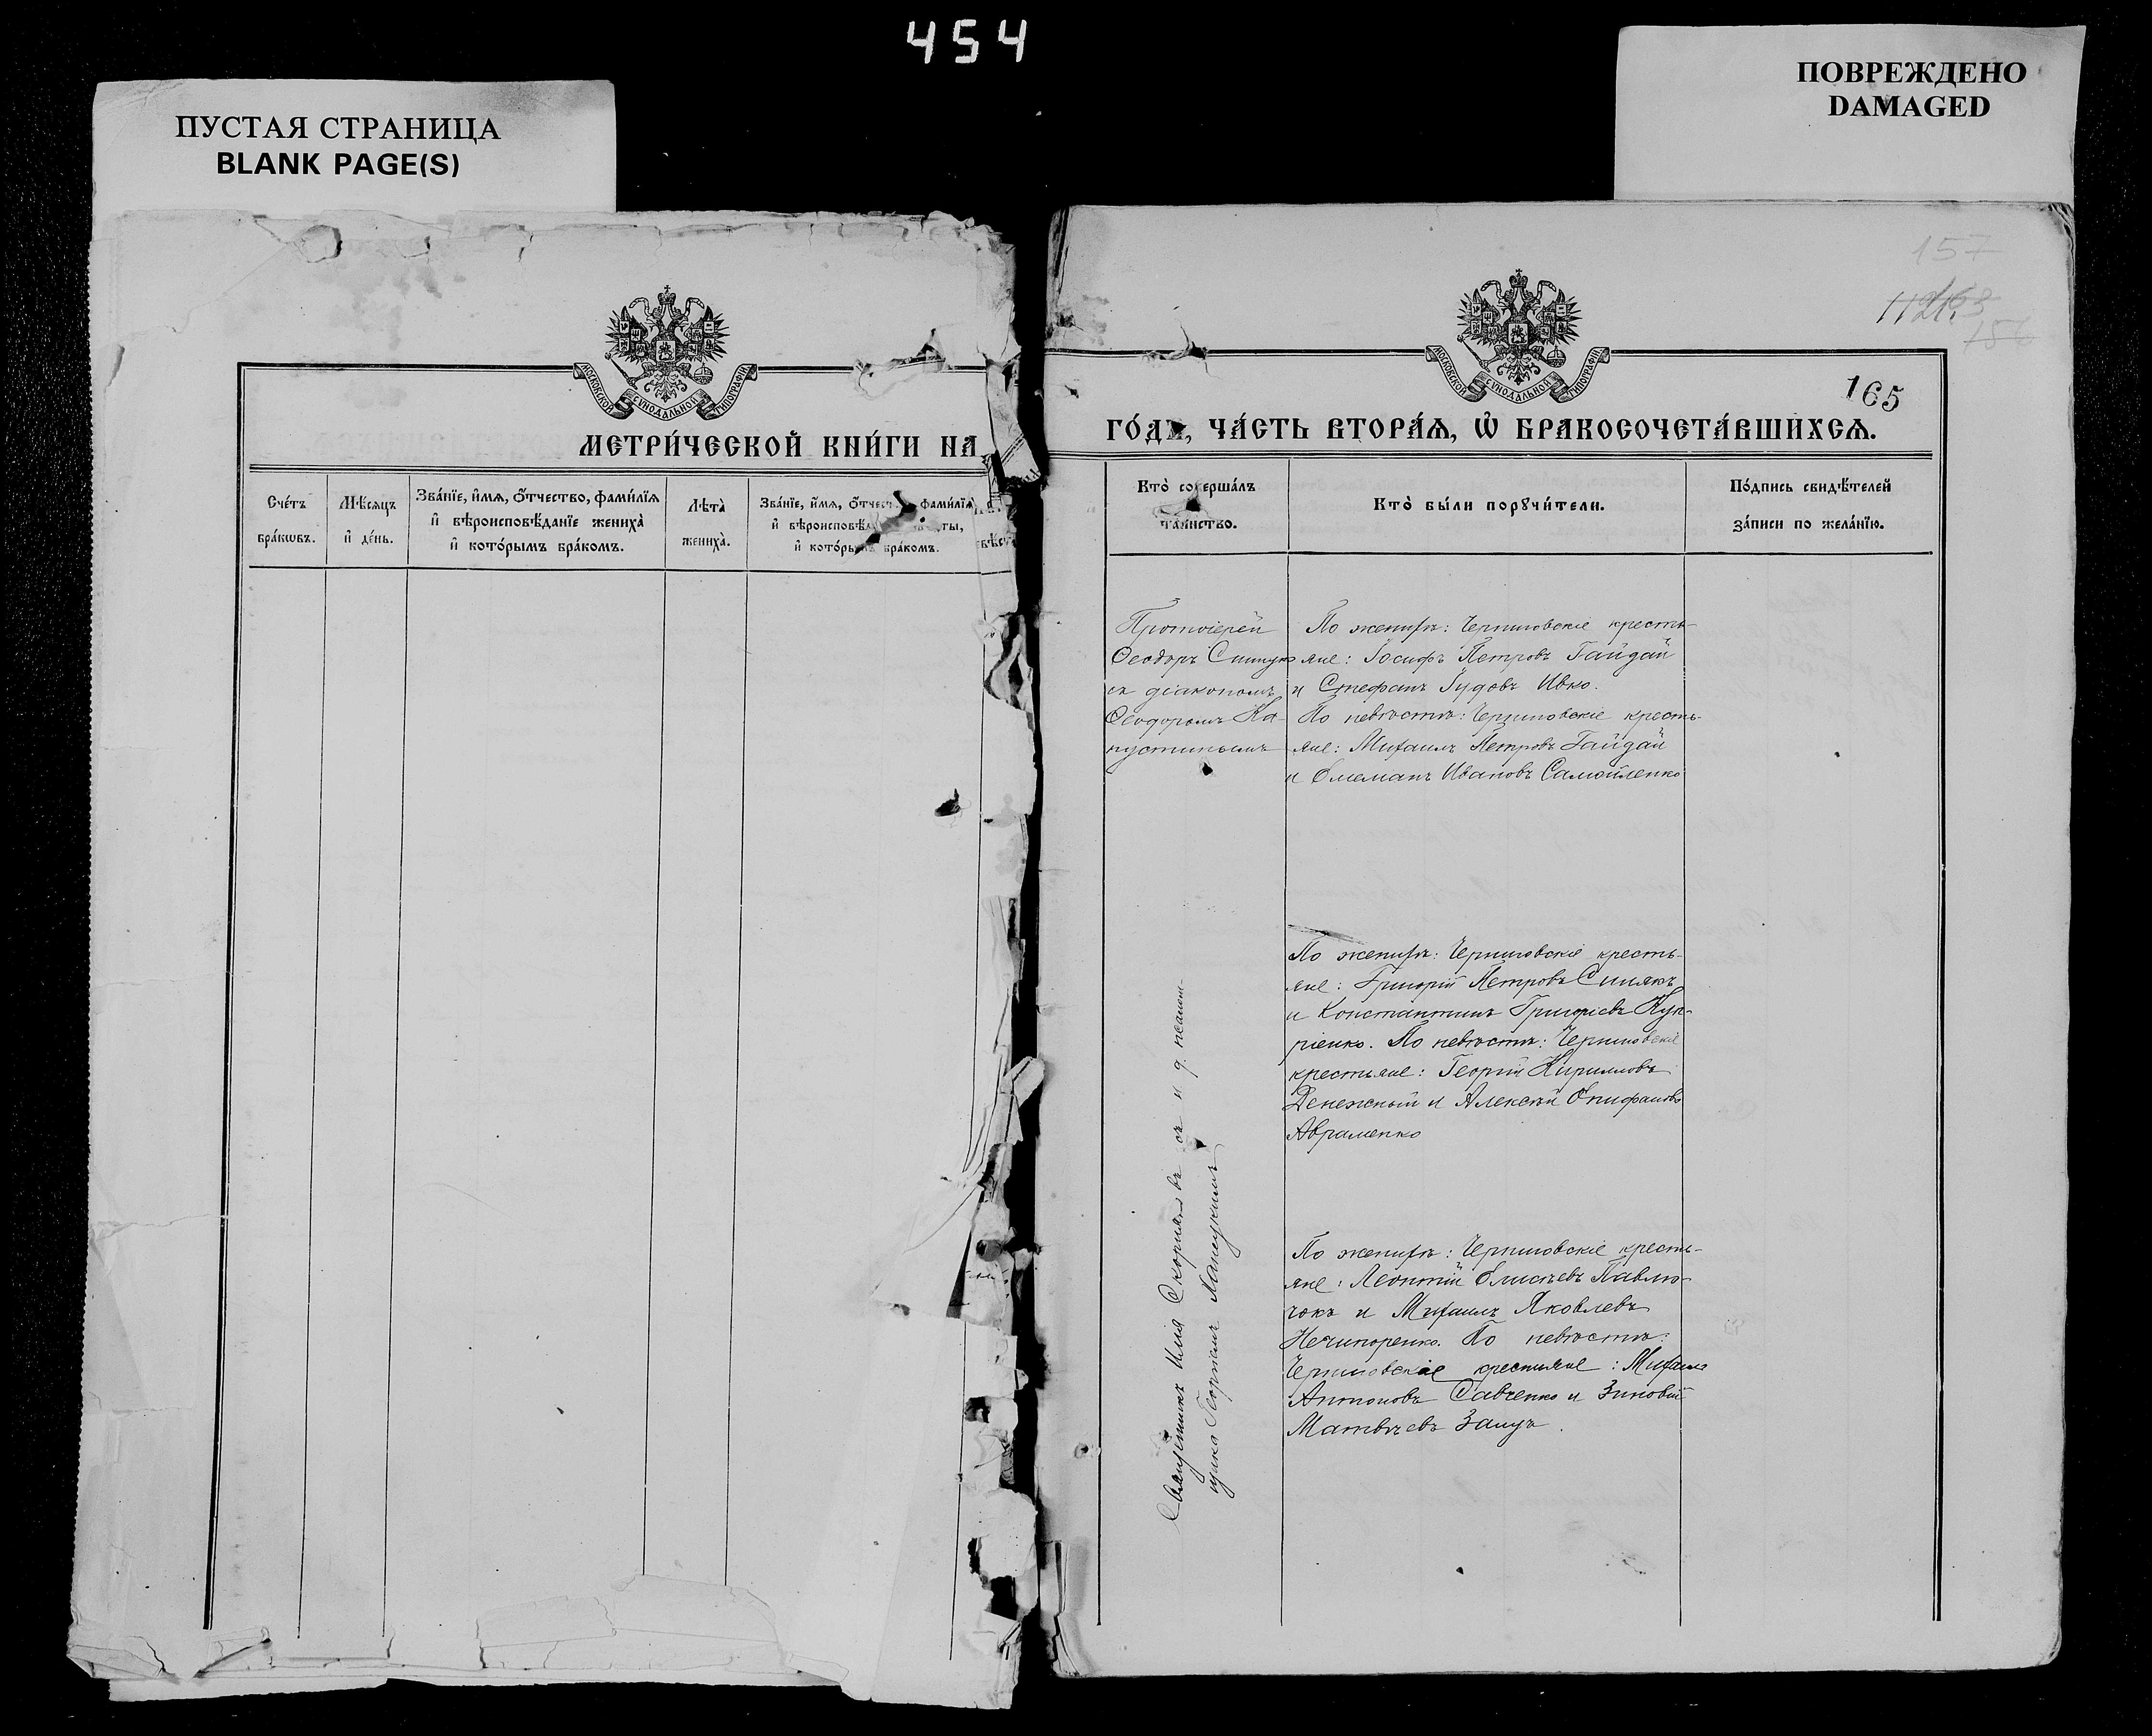 454
ПУСТАЯ СТРАНИЦА
BLANK PAGE(S)
ПОВРЕЖДЕНО
DAMAGED
157
165
МОСКОВСКОЙ СѴНОДАЛЬНОЙ ТИПОГРАФІИ
МЕТРИ́ЧЕСКОЙ КНИ́ГИ НА
Сче́тъ
бра́кѡвъ.
Мѣ́сяцъ
и҆ де́нь.
Зва́нїе, и҆́мѧ, ѻ҆́тчество, фами́лїѧ
и҆ вѣроисповѣ́данїе жениха̀
и҆ кото́рымъ бра́комъ.
Лѣта̀
жениха̀.
Зва́нїе, и҆́мѧ, ѻ҆́тчест фами́лїѧ
и҆ вѣроисповѣ́ ты,
и҆ кото́рымъ бра́комъ.
МОСКОВСКОЙ СѴНОДАЛЬНОЙ ТИПОГРАФІИ
ГО́ДЪ, ЧА́СТЬ ВТОРА́Ѧ, Ѡ҆ БРАКОСОЧЕТА́ВШИХСѦ.
Кто̀ соверша́лъ
та́инство.
Кто̀ бы́ли порꙋчи́тели.
По́дпись свидѣ́телей
за́писи по жела́нїю.
Протоіерей
Ѳеодоръ
съ діакономъ
Ѳеодоромъ Ка-
пустинымъ
По женихѣ: Черниговскіе кресть-
яне: Іосифъ Петровъ Гайдай
и Стефанъ Іудовъ Ивко.
По невѣстѣ: Черниговскіе кресть-
яне: Михаилъ Петровъ Гайдай
и Емеліанъ Ивановъ Самойленко
По женихѣ: Черниговскіе кресть-
яне: Григорій Петровъ Синякъ
и Константинъ Григоріевъ Куп-
ріенко. По невѣстѣ: Черниговскіе
крестьяне: Георгій Кирилловъ
Денежный и Алексѣй Епифановъ
Авраменко
Священникъ Илія съ и д. псалом-
щика Георгіемъ
По женихѣ: Черниговскіе кресть-
яне: Леонтій Елисѣевъ Павлю-
чокъ и Михаилъ Яковлевъ
Нечипоренко. По невѣстѣ:
Черниговскіе крестьяне: Михаилъ
Антоновъ Савченко и Зиновій
Матвѣевъ Заицъ.